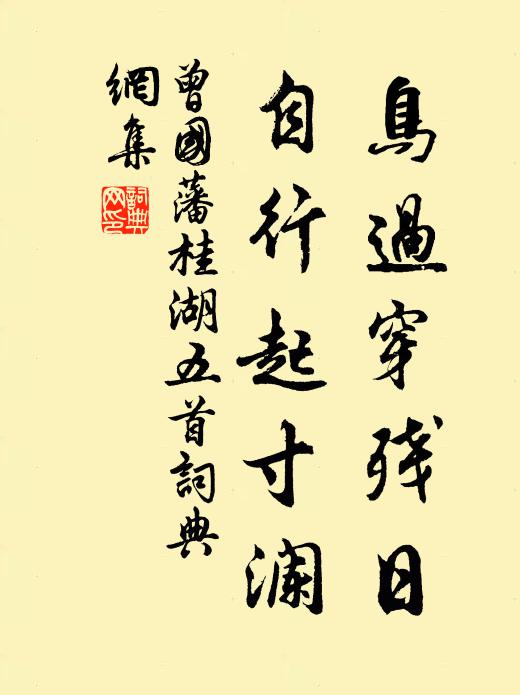 鳥過穿残日
自行起寸瀾
曾國藩桂湖五首詞典
網集
詞典
网印